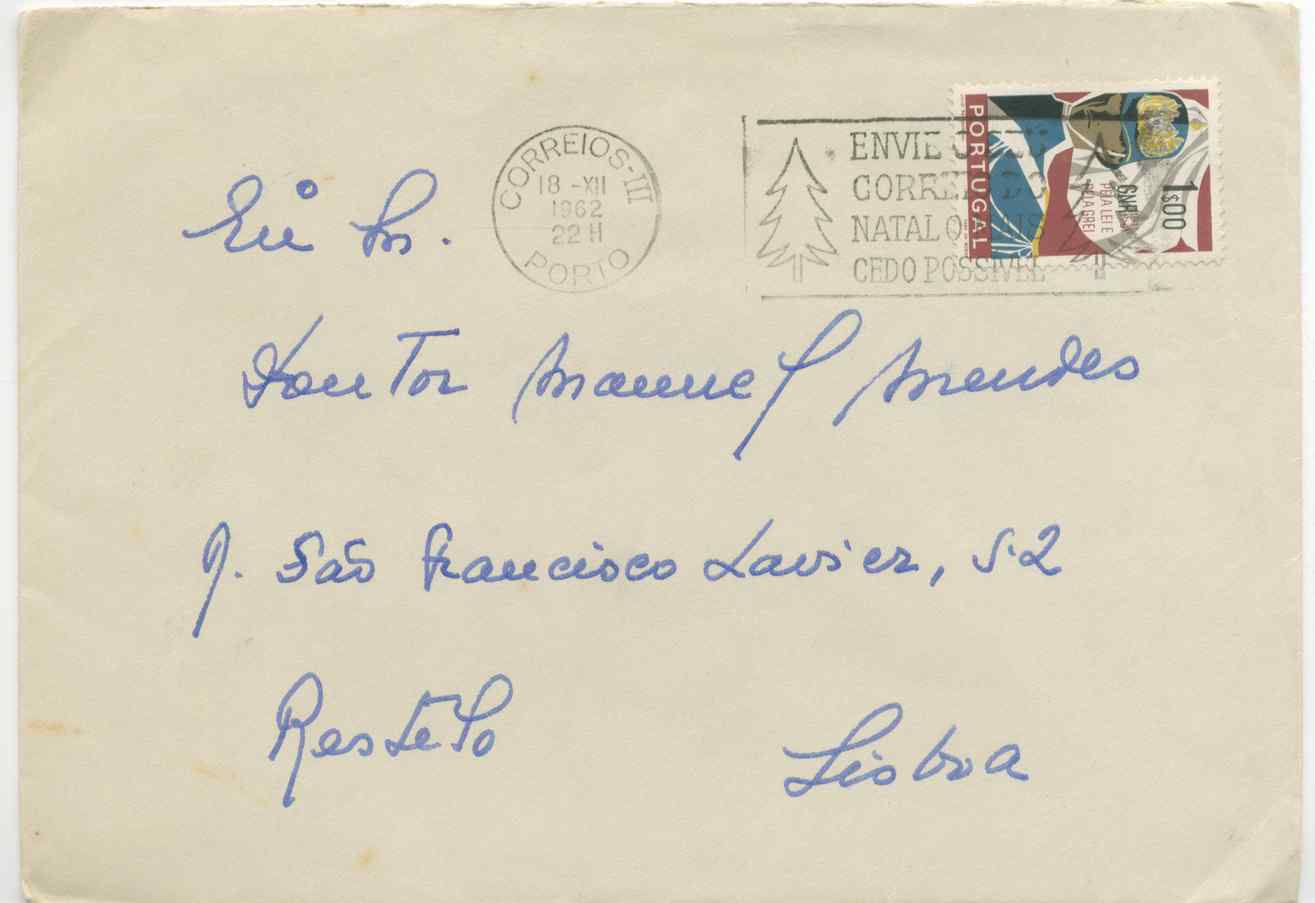 CORREIOS-III
18-XII
1962
22 H
PORTO
ENVIE
CORRE
NATAL
CEDO POSSIVEL
PORTUGAL
GNR
PELA LEI E
PELA GREI
1$00
Doutor Manuel Mendes
R. São Francisco Xavier, 52
Restêlo
Lisboa